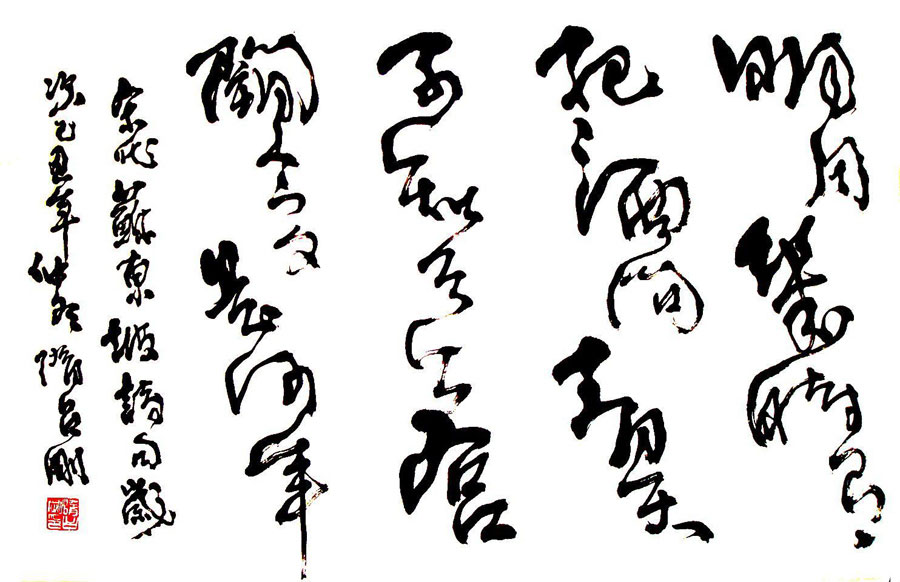 明月幾時有
把酒問青天
不知天上宮
闕今夕是何年
宋代蘇東坡詩句歲
次己丑年仲冬